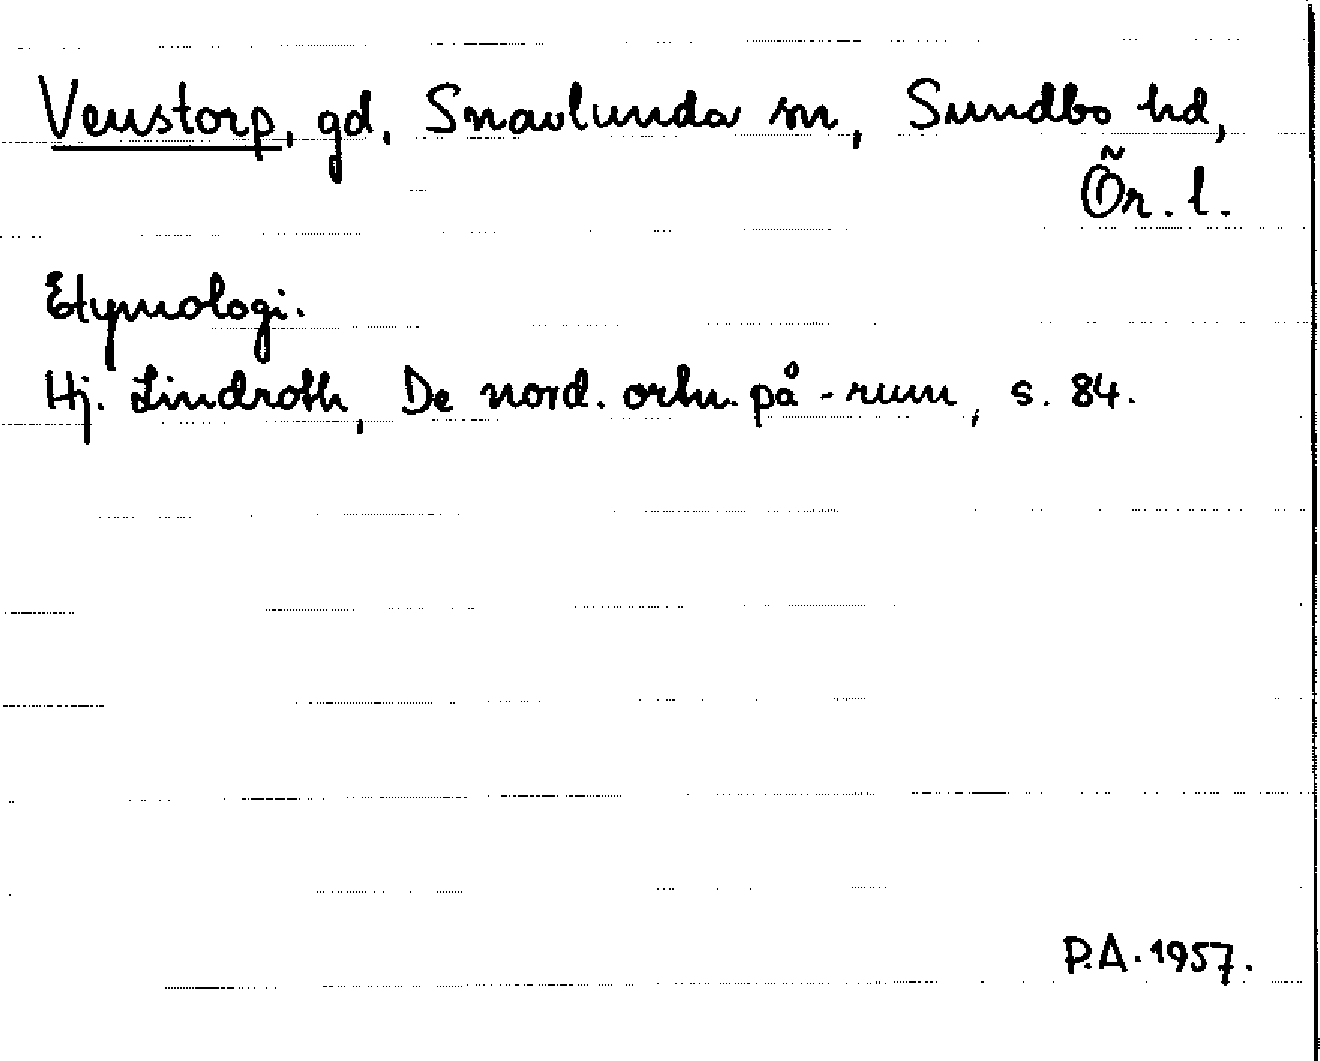 Venstorp, gd, Snavlunda sn, Sundbo hd,
Ör. l.
Etymologi.
Hj. Lindroth, De nord. ortn. på -rum, s. 84.
P.A. 1957.